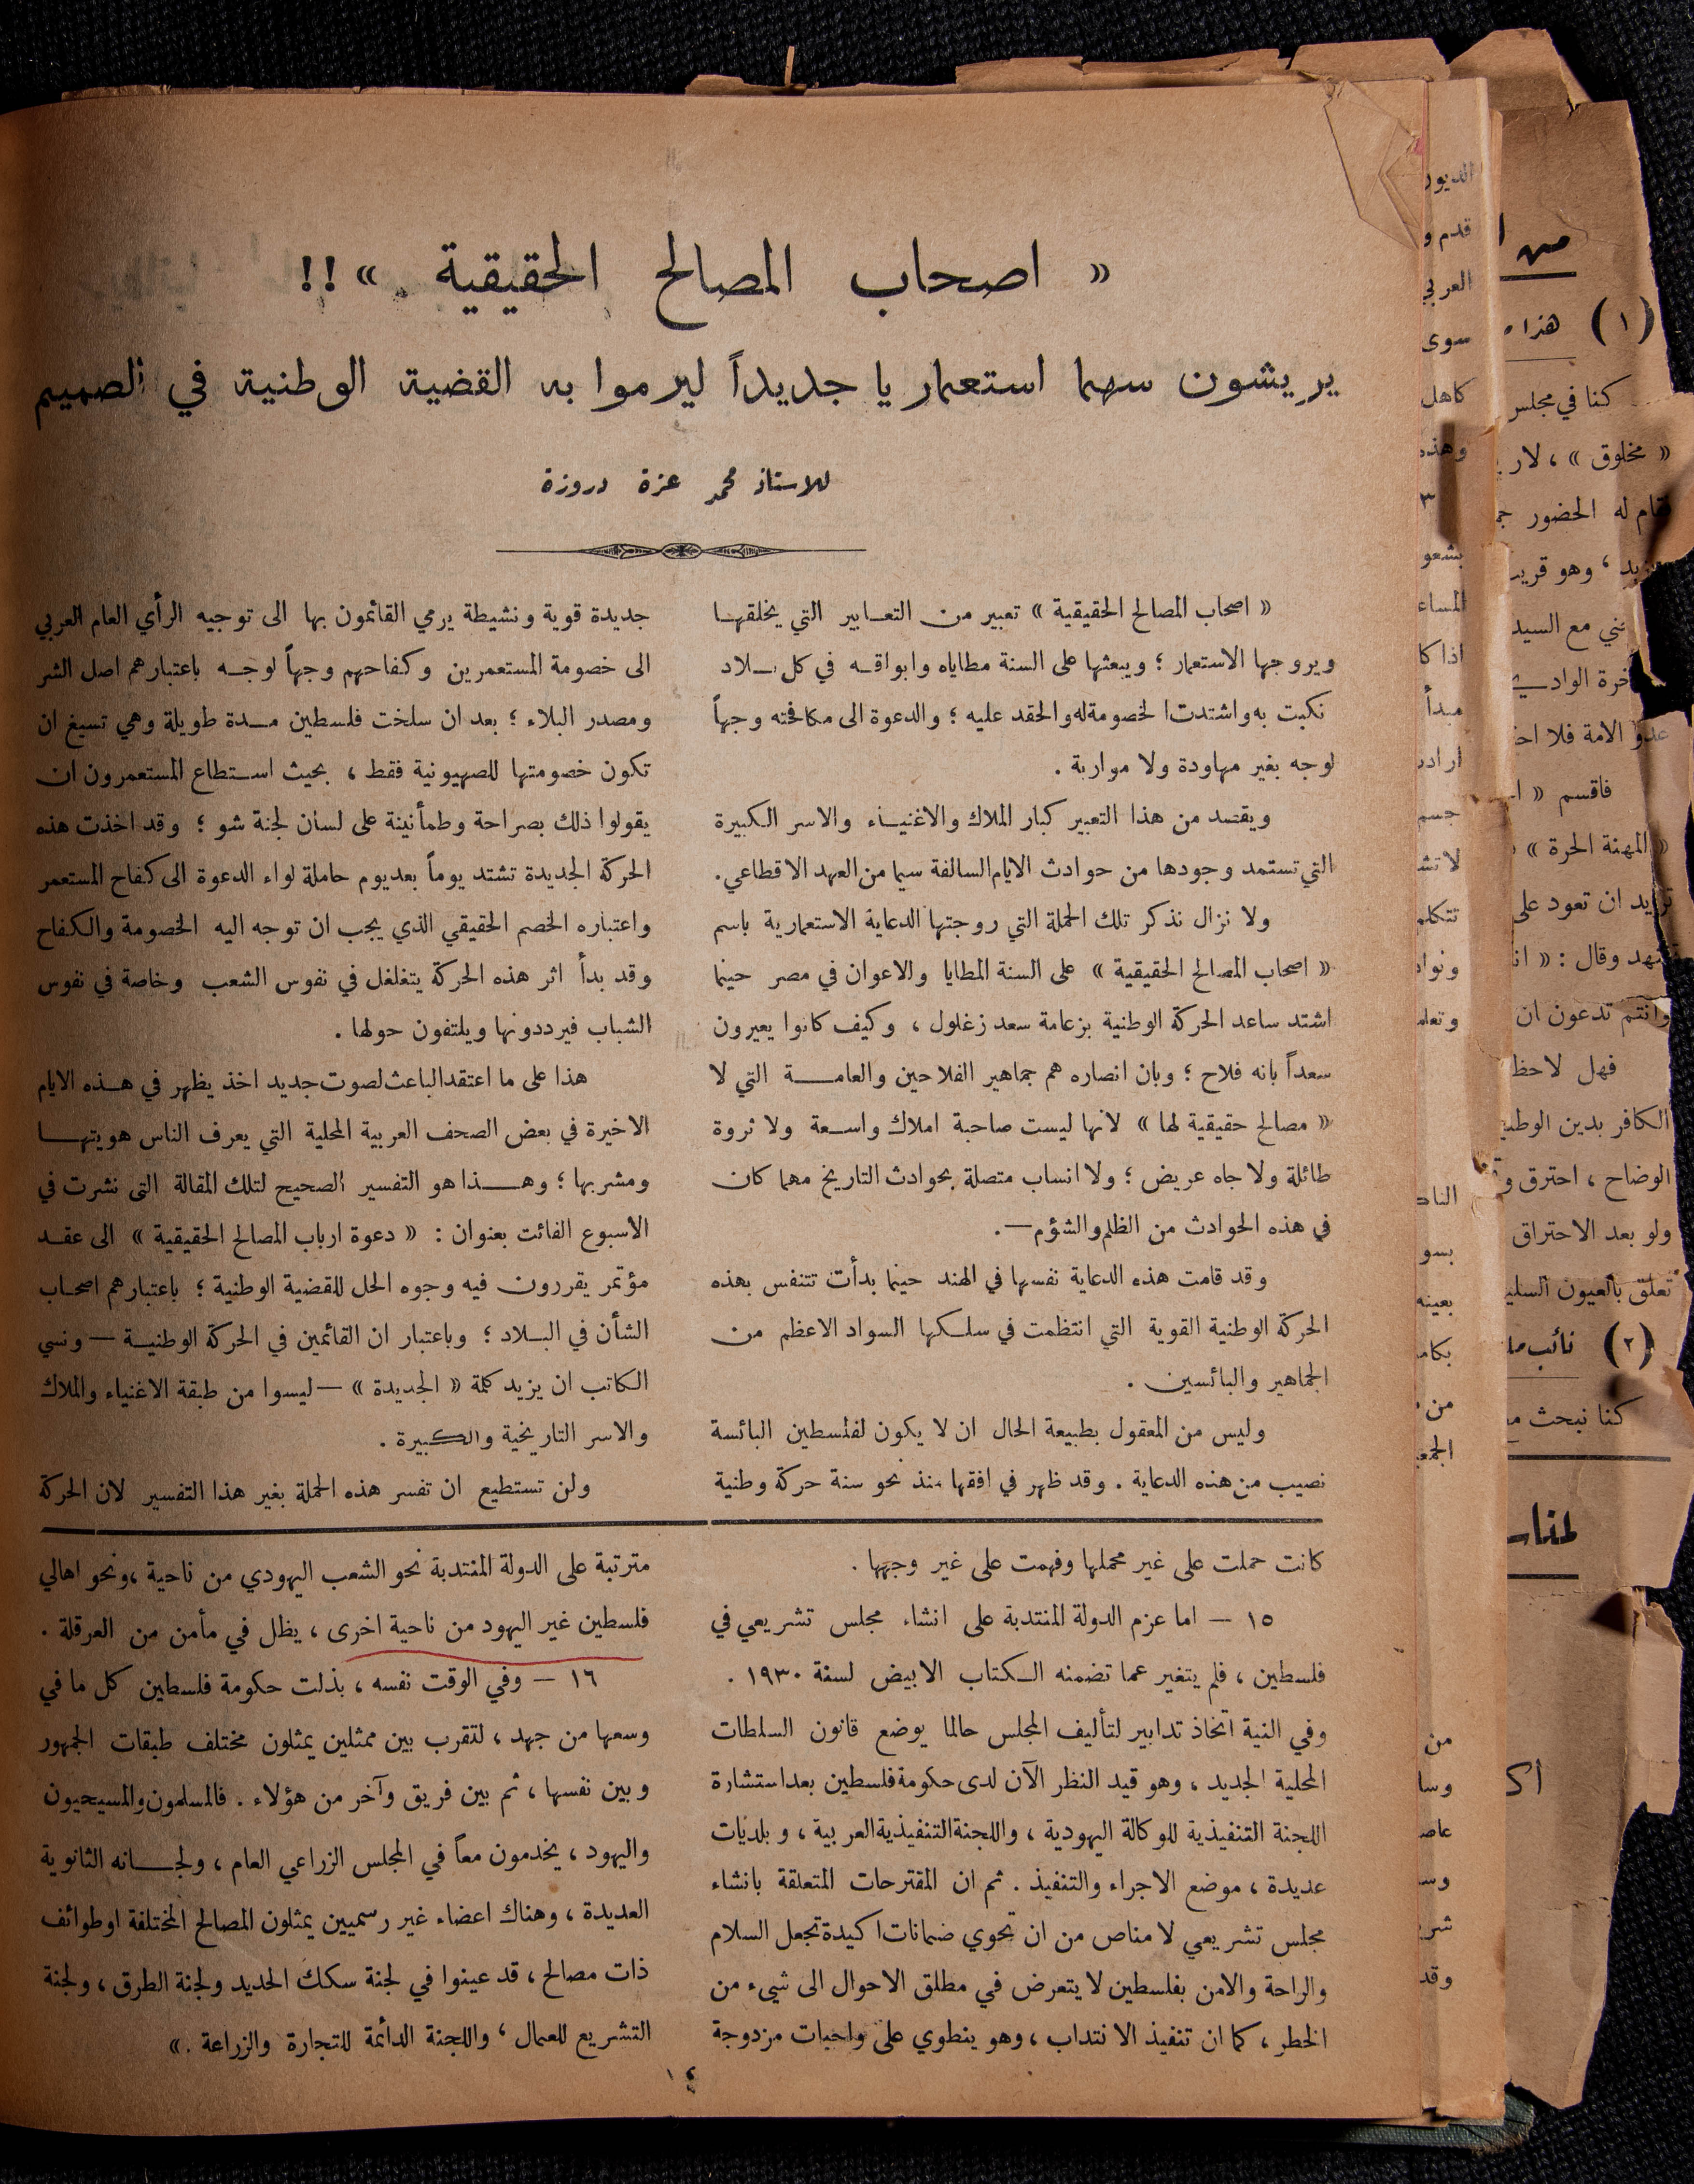 « اصحاب المصالح الحقيقية » !!
يريشون سهما استعمار يا جديداً ليرموا به القضية الوطنية في الصميم
للاستاذ محمد عزة دروزة
« اصحاب المصالح الحقيقية » تعبير من التعابير التي يخلقها
ويروجها الاستعمار ؛ ويبعثها على السنة مطاياه وابواقه في كل بلاد
نكبت به واشتدت الخصومة له والحقد عليه ؛ والدعوة الى مكافحته وجهاً
لوجه بغير مهاودة ولا مواربة .
ويقصد من هذا التعبير كبار الملاك والاغنياء والاسر الكبيرة
التي تستمد وجودها من حوادث الايام السالفة سيما من العهد الاقطاعي .
ولا نزال نذكر تلك الحملة التي روجتها الدعاية الاستعمارية باسم
« اصحاب المصالح الحقيقية » على السنة المطايا والاعوان في مصر حينما
اشتد ساعد الحركة الوطنية بزعامة سعد زغلول ، وكيف كانوا يعيرون
سعداً بانه فلاح ؛ وبان انصاره هم جماهير الفلاحين والعامة التي لا
« مصالح حقيقية لها » لانها ليست صاحبة املاك واسعة ولا ثروة
طائلة ولا جاه عريض ؛ ولا انساب متصلة بحوادث التاريخ مهما كان
في هذه الحوادث من الظلم والشؤم — .
وقد قامت هذه الدعاية نفسها في الهند حينما بدأت تتنفس بهذه
الحركة الوطنية القوية التي انتظمت في سلكها السواد الاعظم من
الجماهير والبائسين .
وليس من المعقول بطبيعة الحال ان لا يكون لفلسطين البائسة
نصيب من هذه الدعاية . وقد ظهر في افقها منذ نحو سنة حركة وطنية
جديدة قوية ونشيطة يرمي القائمون بها الى توجيه الرأي العام العربي
الى خصومة المستعمرين وكفاحهم وجهاً لوجه باعتبارهم اصل الشر
ومصدر البلاء ؛ بعد ان سلخت فلسطين مدة طويلة وهي تسيغ ان
تكون خصومتها للصهيونية فقط ، بحيث استطاع المستعمرون ان
يقولوا ذلك بصراحة وطمأنينة على لسان لجنة شو ؛ وقد اخذت هذه
الحركة الجديدة تشتد يوماً بعد يوم حاملة لواء الدعوة الى كفاح المستعمر
واعتباره الخصم الحقيقي الذي يجب ان توجه اليه الخصومة والكفاح
وقد بدأ اثر هذه الحركة يتغلغل في نفوس الشعب وخاصة في نفوس
الشباب فيرددونها ويلتفون حولها .
هذا على ما اعتقد الباعث لصوت جديد اخذ يظهر في هذه الايام
الاخيرة في بعض الصحف العربية المحلية التي يعرف الناس هويتها
ومشربها ؛ وهذا هو التفسير الصحيح لتلك المقالة التى نشرت في
الاسبوع الفائت بعنوان : « دعوة ارباب المصالح الحقيقية » الى عقد
مؤتمر يقررون فيه وجوه الحل للقضية الوطنية ؛ باعتبارهم اصحاب
الشأن في البلاد ؛ وباعتبار ان القائمين في الحركة الوطنية — ونسي
الكاتب ان يزيد كلمة « الجديدة » — ليسوا من طبقة الاغنياء والملاك
والاسر التاريخية والكبيرة .
ولن تستطيع ان تفسر هذه الحملة بغير هذا التفسير لان الحركة
كانت حملت على غير محملها وفهمت على غير وجهها .
١٥ — اما عزم الدولة المنتدبة على انشاء مجلس تشريعي في
فلسطين ، فلم يتغير عما تضمنه الكتاب الابيض لسنة ١٩٣٠ .
وفي النية اتخاذ تدابير لتأليف المجلس حالما يوضع قانون السلطات
المحلية الجديد ، وهو قيد النظر الآن لدى حكومة فلسطين بعد استشارة
اللجنة التنفيذية للوكالة اليهودية ، واللجنة التنفيذية العربية ، وبلديات
عديدة ، موضع الاجراء والتنفيذ . ثم ان المقترحات المتعلقة بانشاء
مجلس تشريعي لا مناص من ان تحوي ضمانات اكيدة تجعل السلام
والراحة والامن بفلسطين لا يتعرض في مطلق الاحوال الى شيء من
الخطر ، كما ان تنفيذ الانتداب ، وهو ينطوي على واجبات مزدوجة
مترتبة على الدولة المنتدبة نحو الشعب اليهودي من ناحية ، ونحو اهالي
فلسطين غير اليهود من ناحية اخرى ، يظل في مأمن من العرقلة .
١٦ — وفي الوقت نفسه ، بذلت حكومة فلسطين كل ما في
وسعها من جهد ، لتقرب بين ممثلين يمثلون مختلف طبقات الجمهور
وبين نفسها ، ثم بين فريق وآخر من هؤلاء . فالمسلمون والمسيحيون
واليهود ، يخدمون معاً في المجلس الزراعي العام ، ولجانه الثانوية
العديدة ، وهناك اعضاء غير رسميين يمثلون المصالح المختلفة او طوائف
ذات مصالح ، قد عينوا في لجنة سكك الحديد ولجنة الطرق ، ولجنة
التشريع للعمال ، واللجنة الدائمة للتجارة والزراعة . »
قدم و
العربي
سوى
كاهل
وهذه
(١) هذا
كنا في مجلس
« مخلوق » ، لا
له الحضور
وهو قريب
مع السيد
الامة فلا
فاقسم «
المهنة الحرة »
ان تعود على
وقال : «
وانتم تدعون ان
فهل لاحظ
الكافر بدين
الوضاح ، احترق
ولو بعد الاحتراق
تعلق بالعيون
(٢) نائب
كنا نبحث